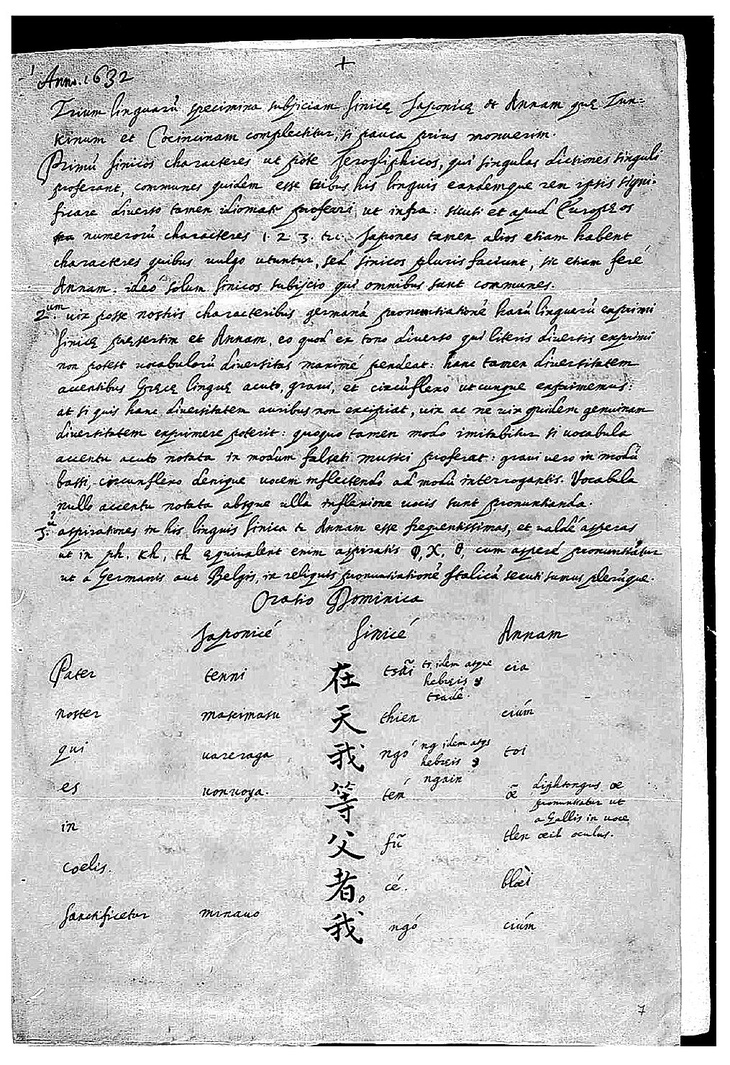 Anno. 1632
+
Trium linguarũ specimina subjiciam Sinicę Japonicę et Annam quę Tun-
kinum et Cocincinam complectitur, si pauca prius monuerim.
Primũ Sinicos characteres ut pote Jerogliphicos, qui singulas dictiones singuli
proferant, communes quidem esse tribus his linguis eandemque rem ipsis signi-
ficare diverso tamen idiomate proferri ut infra: sicuti et apud Europęos
numerorũ characteres 1. 2. 3. etc. Japones tamen alios etiam habent
characteres quibus vulgo utuntur, sed Sinicos pluris faciunt, sic etiam ferè
Annam: ideo solum Sinicos subijcio qui omnibus sunt communes.
2um vix posse nostris characteribus germanã pronuntiationẽ harũ linguarũ exprimi
Sinicę pręsertim et Annam, eo quod ex tono diverso qui literis diversis exprimi
non potest vocabulorũ diversitas maximè pendeat: hanc tamen diversitatem
accentibus Gręcę linguę acuto, gravi, et circũflexo utcunque exprimemus:
at si quis hanc diversitatem auribus non excipiat, vix ac ne vix quidem genuinam
diversitatem exprimere poterit: quoquo tamen modo imitabitur si vocabula
accentu acuto notata in modum falseti musici proferat: gravi vero in modũ
bassi, circunflexo denique vocem inflectendo ad modũ interrogantis. Vocabula
nullo accentu notata absque ulla inflexione vocis sunt pronuntianda.
3. aspirationes in his linguis Sinica et Annam esse frequentissimas, et valdè asperas
ut in ph, kh, th equivalent enim aspiratis φ, χ, θ, cum asperè pronuntiãtur
ut a Germanis aut Belgis, in reliquis pronuntiationẽ Italicã secuti sumus plerũque.
Oratio Dominica
Japonicè Sinicè Annam
Pater tenni 在 tsãi ts idem atque hebreis צ tsade. cia
noster masimasu 天 thien ciúm
qui vareraga 我 ngó ng idem atqs hebreis ע ngain toi
es vonvoya. 等 tẻn œ̃ diphtongus œ pronuntiatur ut a Gallis in voce œil oculus.
in 父 fũ tlen
coelis. 者。 cé. blœì
Sanctificetur minavo 我 ngó ciúm
7